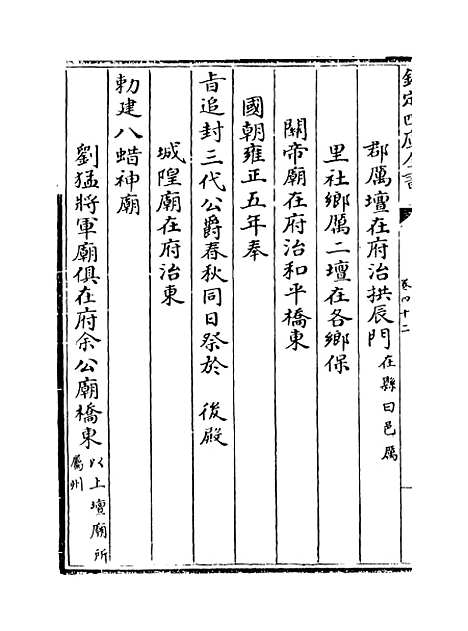 欽定四庫全書
卷四十二
郡厲壇在府治拱辰門在縣曰邑厲
里社鄉厲二壇在各鄉保
關帝廟在府治和平橋東
國朝雍正五年奉
旨追封三代公爵春秋同日祭於 後殿
城隍廟在府治東
勅建八蜡神廟
劉猛將軍廟俱在府余公廟橋東以上壇廟所屬州